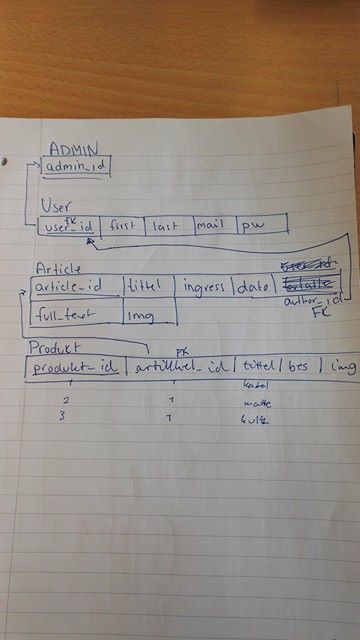 ADMIN
admin_id
User
FK
user_id first last mail pw
Article
article_id tittel ingress dato
author_id
FK
full_text img
Produkt
FK
produkt_id artikkel_id tittel bes img
1 1 kabel
2 1 matte
3 1